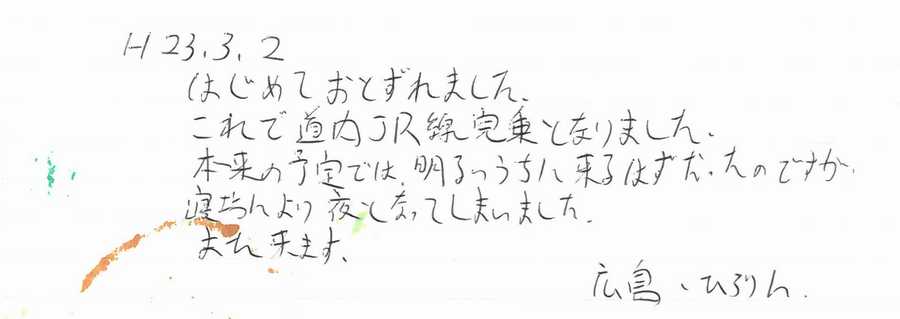 H23.3.2
はじめておとずれました。
これで道内JR線完乗となりました。
本来の予定では、明るいうちに来るはずだったのですが、
寝坊により夜となってしまいました。
また来ます。
広島・ひろりん.